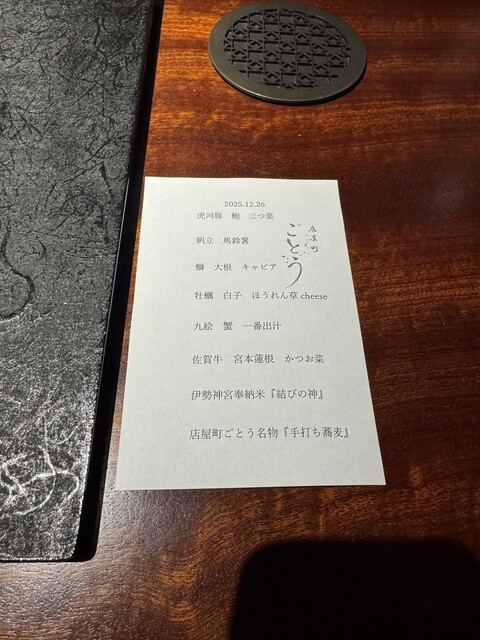 2025.12.26
虎河豚 鮑 三つ葉
店屋町
ごとう
帆立 馬鈴薯
鰤 大根 キャビア
牡蠣 白子 ほうれん草 cheese
九絵 蟹 一番出汁
佐賀牛 宮本蓮根 かつお菜
伊勢神宮奉納米『結びの神』
店屋町ごとう名物『手打ち蕎麦』